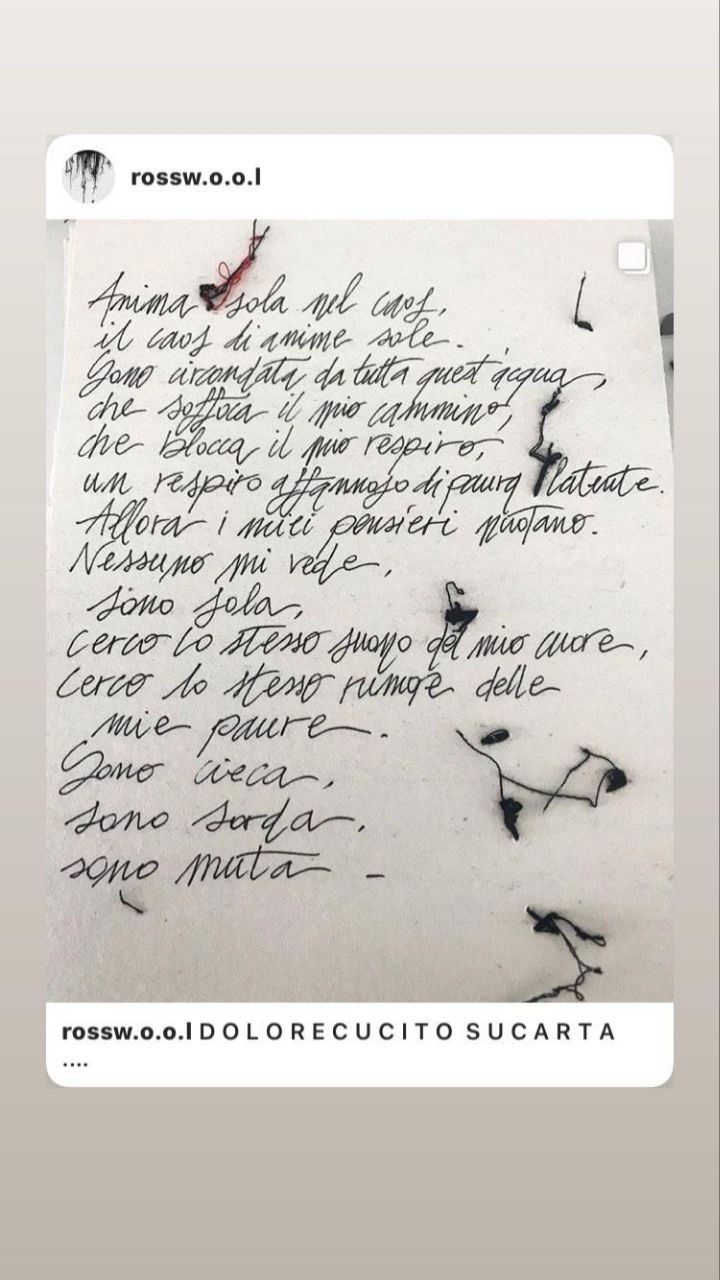 rossw.o.o.l
Anima sola nel caos,
il caos di anime sole.
Sono circondata da tutta quest'acqua,
che soffoca il mio cammino,
che blocca il mio respiro,
un respiro affannoso di paura latente.
Allora i miei pensieri nuotano.
Nessuno mi vede,
sono sola,
cerco lo stesso suono del mio cuore,
cerco lo stesso rumore delle
mie paure.
Sono cieca,
sono sorda,
sono muta -
rossw.o.o.l D O L O R E C U C I T O S U C A R T A
....